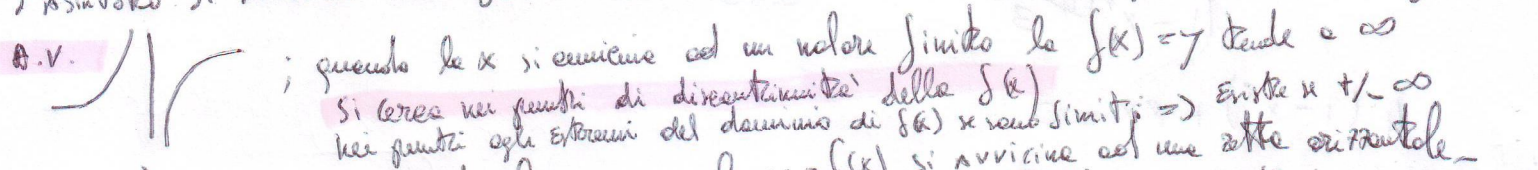 A.V. ; quando la x si avvicina ad un valore finito la f(x) = y tende a ∞
si cerca nei punti di discontinuità della f(x)
nei punti agli estremi del dominio di f(x) se sono finiti => Esiste se +/- ∞
f(x) si avvicina ad una retta orizzontale_